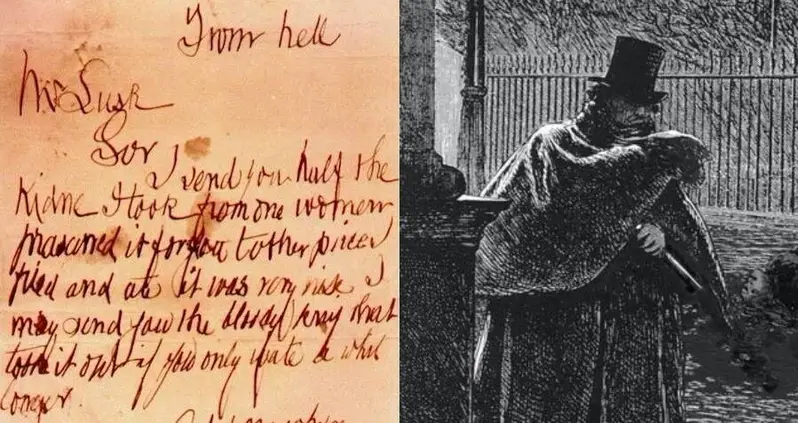 From hell
Mr Lusk
Sor
I send you half the
Kidne I took from one women
prasarved it for you tother piece I
fried and ate it was very nise I
may send you the bloody knif that
took it out if you only wate a whil
longer